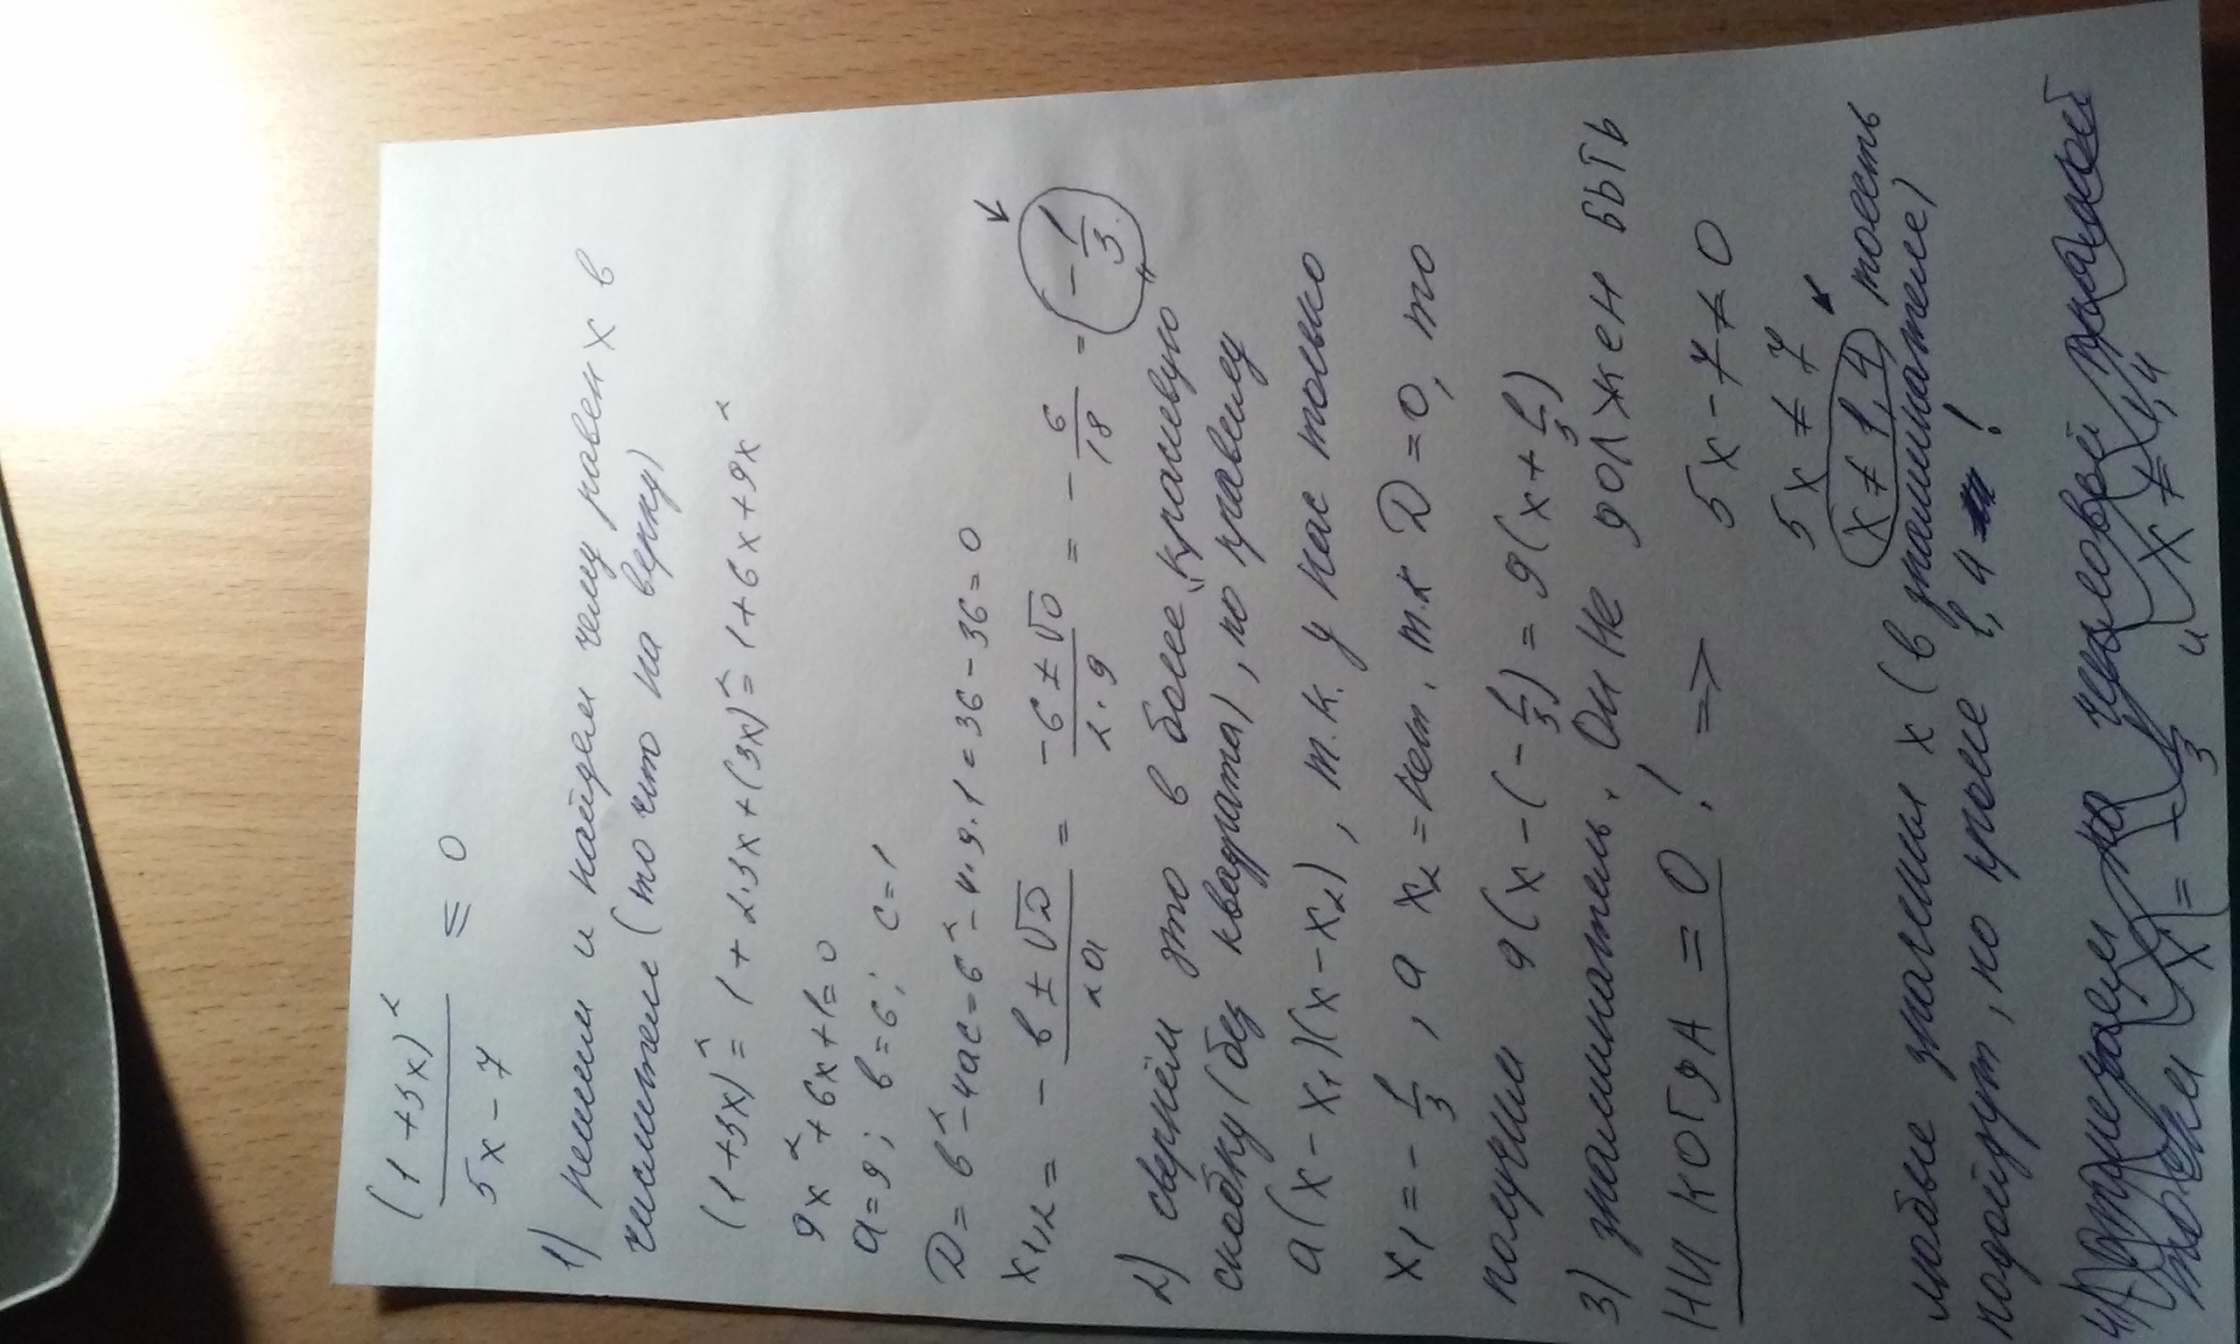 (1+3x)²
5x-7 ≤ 0
1) решим и найдем чему равен x в
числителе (то что на верху)
(1+3x)² = 1+2·3x+(3x)² = 1+6x+9x²
9x²+6x+1=0
a=9; b=6; c=1
D=b²-4ac=6²-4·9·1=36-36=0
x1,2 = -b±√D / 2a = -6±√0 / 2·9 = -6/18 = -1/3
2) свернём это в более "красивую"
скобку (без квадрата), по правилу
a(x-x1)(x-x2), т.к. у нас только
x1=-1/3, а x2=нет. т.к D=0, то
получим 9(x-(-1/3)) = 9(x+1/3)
3) знаменатель. Он не должен быть
НИ КОГДА = 0! => 5x-7≠0
5x≠7
x≠1,4 тоесть
любые значения x (в знаменателе)
подойдут, но кроме 1,4!
4) на числовой прямой
точки x=-1/3 и x≠1,4